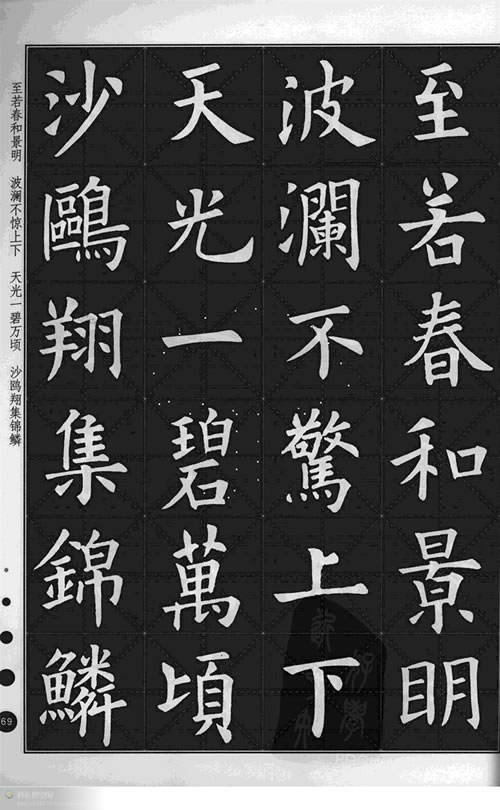 至若春和景明
波瀾不驚上下
天光一碧萬頃
沙鷗翔集錦鱗
至若春和景明 波澜不惊上下 天光一碧万顷 沙鸥翔集锦鳞
69